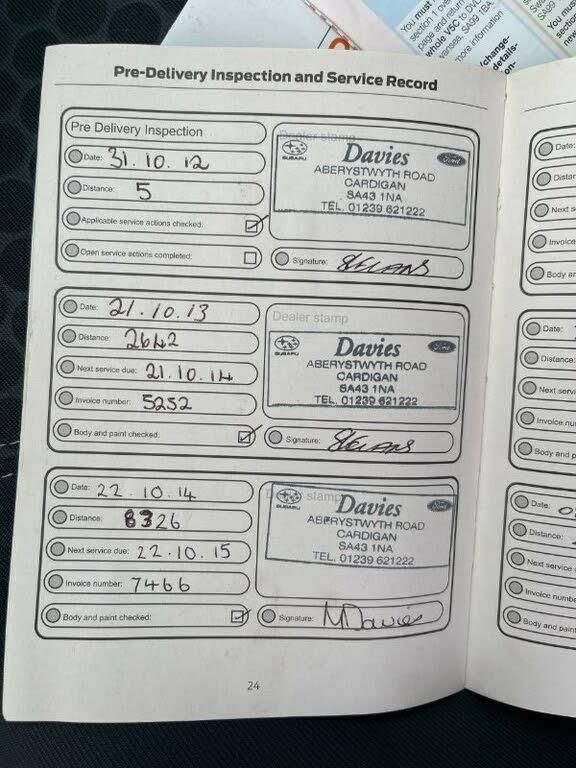 You must
section
page and return
whole V5C to DV
Swansea, SA99 1BA.
more information
change-
details-
on-
SA99
You must
section
new
Pre-Delivery Inspection and Service Record
Pre Delivery Inspection
Date: 31.10.12
Distance: 5
Applicable service actions checked:
Open service actions completed:
Dealer stamp
SUBARU Davies Ford
ABERYSTWYTH ROAD
CARDIGAN
SA43 1NA
TEL. 01239 621222
Signature:
Date: 21.10.13
Distance: 2642
Next service due: 21.10.14
Invoice number: 5252
Body and paint checked:
Dealer stamp
SUBARU Davies Ford
ABERYSTWYTH ROAD
CARDIGAN
SA43 1NA
TEL. 01239 621222
Signature:
Date: 22.10.14
Distance: 8326
Next service due: 22.10.15
Invoice number: 7466
Body and paint checked:
Dealer stamp
SUBARU Davies Ford
ABERYSTWYTH ROAD
CARDIGAN
SA43 1NA
TEL. 01239 621222
Signature: M Davies
24
Date:
Distan
Next s
Invoice
Body an
Date:
Distance:
Next servi
Invoice nu
Body and p
Date: 0
Distance:
Next service
Invoice numbe
Body and paint